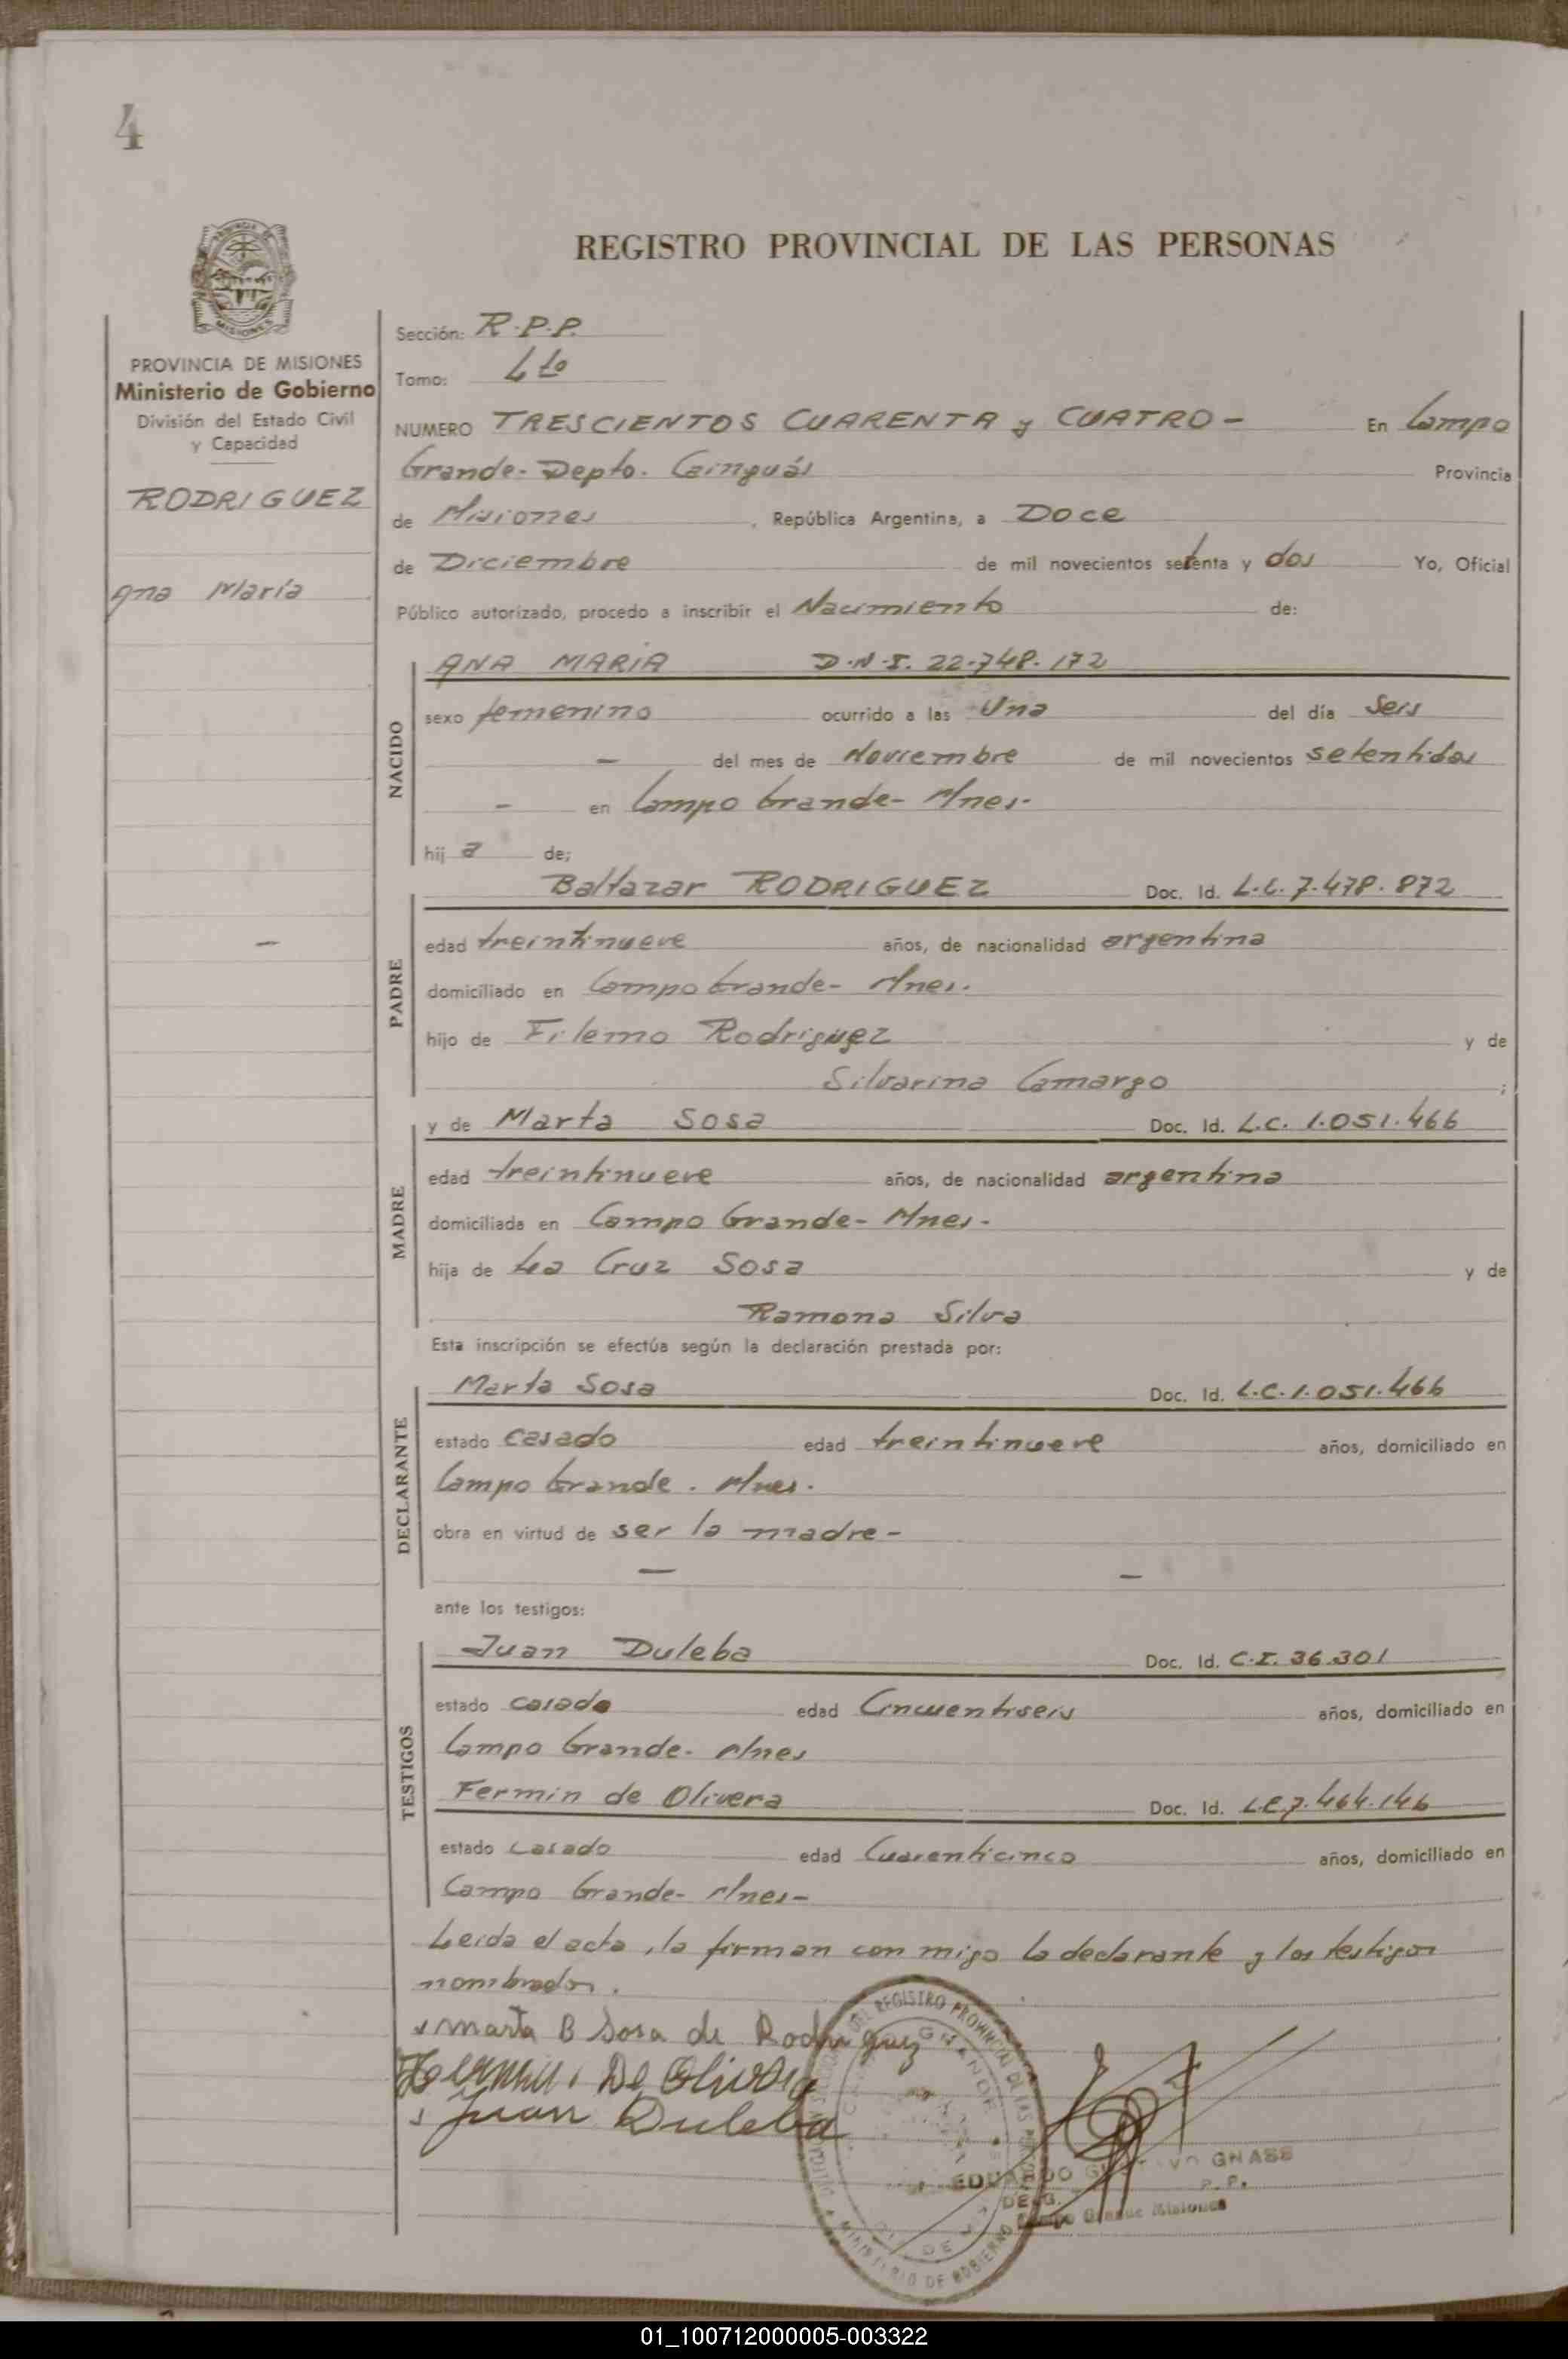 4
REGISTRO PROVINCIAL DE LAS PERSONAS
MISIONES
PROVINCIA DE MISIONES
Ministerio de Gobierno
División del Estado Civil
y Capacidad
RODRIGUEZ
Ana María
Sección: R.P.P.
Tomo: 4to
NUMERO TRESCIENTOS CUARENTA y CUATRO - En Campo
Grande- Depto. Cainguás Provincia
de Misiones, República Argentina, a Doce
de Diciembre de mil novecientos setenta y dos Yo, Oficial
Público autorizado, procedo a inscribir el Nacimiento de:
NACIDO
ANA MARIA D.N.I. 22.748.172
sexo femenino ocurrido a las Una del día Seis
- del mes de Noviembre de mil novecientos setentidos
- en Campo Grande- Mnes-
hij a de;
PADRE
Baltazar RODRIGUEZ Doc. Id. 7.478.872
edad treintinueve años, de nacionalidad argentina
domiciliado en Campo Grande- Mnes.
hijo de Filemo Rodriguez y de
Silvarina Camargo ;
MADRE
y de Marta Sosa Doc. Id. L.C. 1.051.466
edad treintinueve años, de nacionalidad argentina
domiciliada en Campo Grande- Mnes-
hija de La Cruz Sosa y de
Ramona Silva
Esta inscripción se efectúa según la declaración prestada por:
DECLARANTE
Marta Sosa Doc. Id. L.C. 1.051.466
estado casado edad treintinueve años, domiciliado en
Campo Grande. Mnes.
obra en virtud de ser la madre-
- -
ante los testigos:
TESTIGOS
Juan Duleba Doc. Id. C.I. 36.301
estado casado edad Cincuentiseis años, domiciliado en
Campo Grande- Mnes
Fermin de Olivera Doc. Id. L.E.7.464.146
estado casado edad Cuarenticinco años, domiciliado en
Campo Grande- Mnes-
Leida el acta, la firman con migo la declarante y los testigos
nombrados.
Marta B Sosa de Rodriguez
De Olivera
Juan Duleba
DEL REGISTRO PROVINCIAL DE LAS
MINISTERIO DE GOBIERNO
EDUARDO GNASS
Grande Misiones
01_100712000005-003322